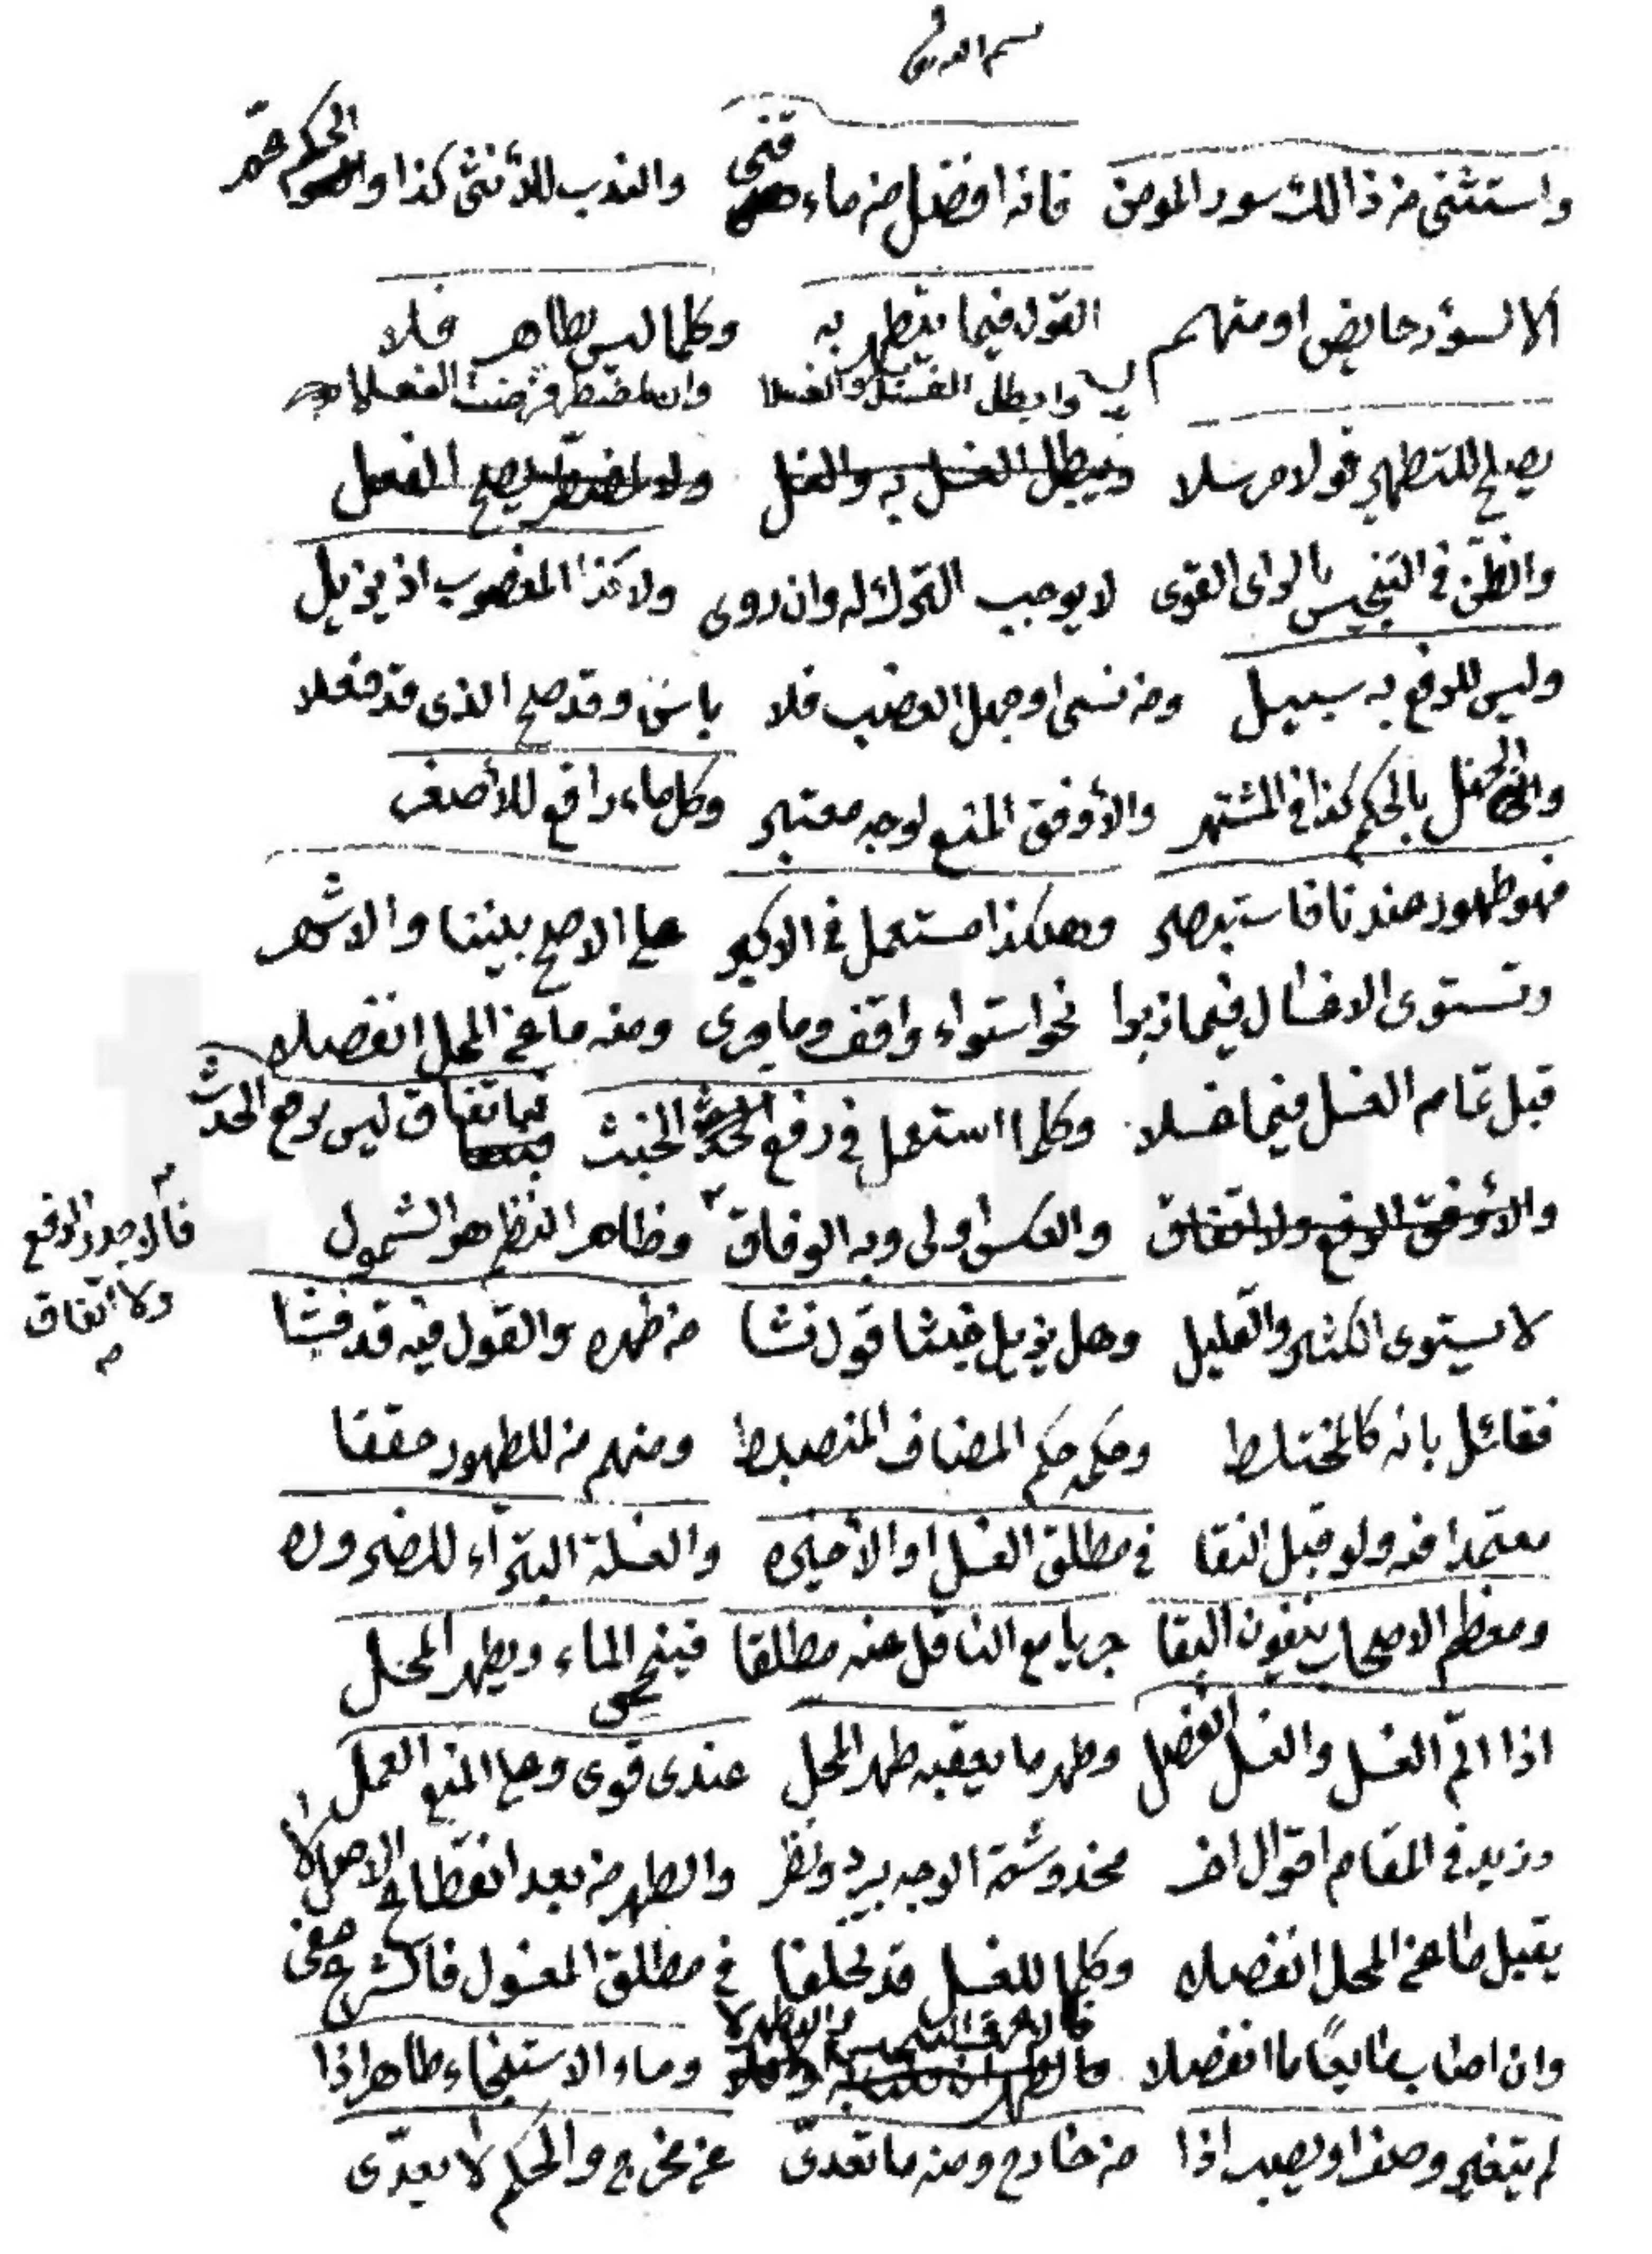 واستثنى من ذالك سور المومن فانه افضل من ماء قنى والندب للأنثى كذا والحكم
الا لسؤر حايض او متهم القول فيما يتطهر به وكلما ليس بطاهر فلا
وابطل الغسل والغسلا وان
يصلح للتطهير قولا مرسلا ويبطل الغسل به والغسل ولو اضطر يصح الفعل
والظن في التنجيس بالراى القوى لا يوجب الترك له وان روى ولا كذا المغصوب اذ يزيل
وليس للرفع به سبيل ومن نسى او جهل الغصب فلا باس وقد صح الذى قد فعلا
والجهل بالحكم كذا في المشتهر والأوفق المنع لوجه معتبر وكل ماء رافع للأصغر
فهو طهور عندنا فاستبصر وهكذا مستعمل في الاكبر على الاصح بيننا والاشهر
وتستوى الاغسال فيما زبرا نحو استواء واقف وما جرى ومنه ما عن المحل انفصلا
قبل تمام الغسل فيما غسلا وكلما استعمل في رفع الخبث فباتفاق ليس يرفع الحدث
والأوفق الرفع ولا اتفاق والعكس اولى وبه الوفاق وظاهر النظم هو الشمول
فالاجود الرفع
ولا اتفاق
لا يستوى الكثير والقليل وهل يزيل خبثا قول نشا من طهره والقول فيه قد فشا
فقائل بانه كالمختلط وحكمه حكم المضاف المنضبط ومنهم من للطهور حققا
معتمدا فه ولو قبل النقا في مطلق الغسل او الأخيره والغسلة البتراء للضروره
ومعظم الاصحاب ينفون البقا جريا مع الناقل عنه مطلقا فينجس الماء ويطهر المحل
اذا اتم الغسل والغسل انفصل وطهر ما يعقبه طهر المحل عندى قوى وعلى المنع العمل
وزيد في المقام اقوال اخر مخدوشة الوجه برد ونظر والطهر من بعد انفطاح الاصل لا
يقبل ما عن المحل انفصلا وكلما للغسل قد تخلفا في مطلق المغسول فالشرع عفى
وان اصاب طايحا ما انفصلا وماء الاستنجاء طاهر اذا
لم يتغير وصفا او يصب اذا من خارج ومنه ما تعدى عن مخرج والحكم لا يعدى